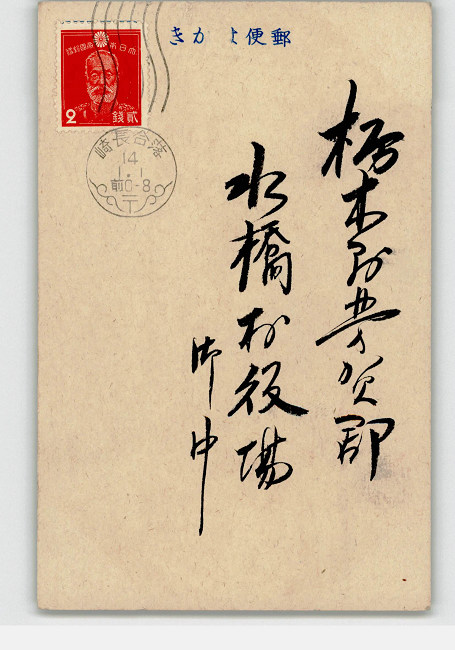 郵便はがき
大日本帝国郵便
2
貳銭
落合長崎
14
1.1
前0-8
栃木県芳賀郡
水橋村役場
御中